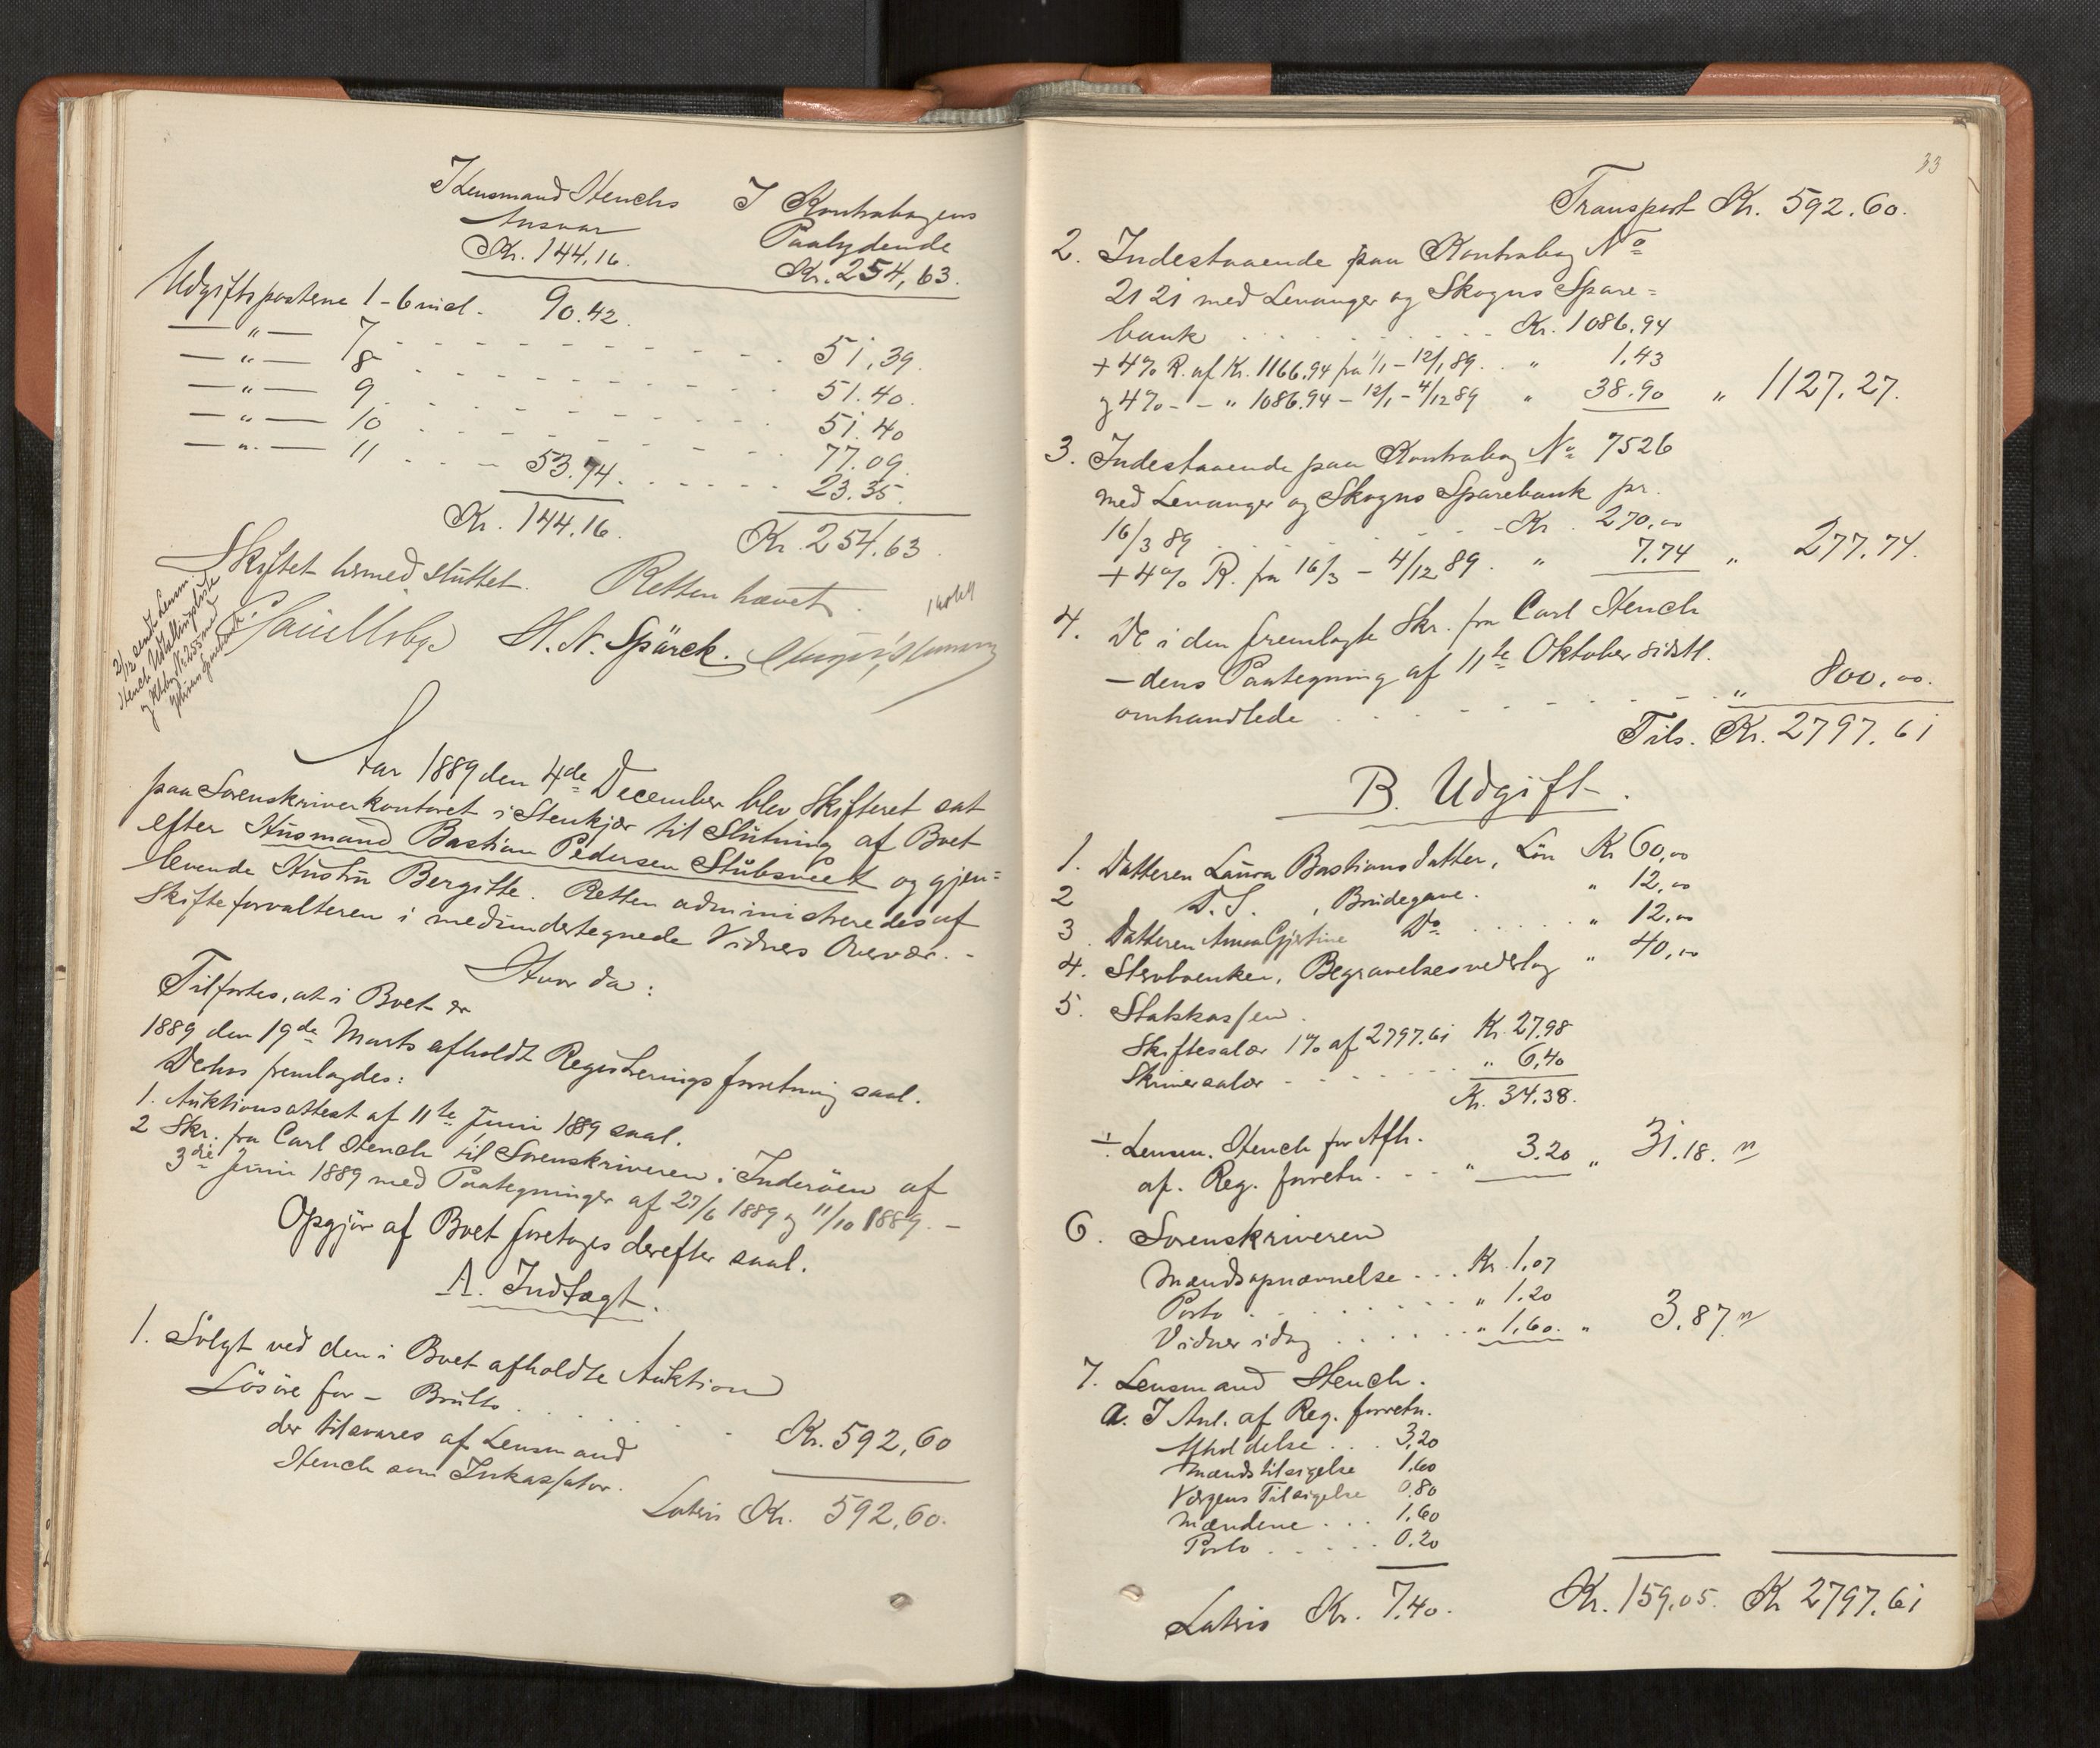 I Lensmand Stenchs
Ansvar
Kr. 144,16.
I Kontrabogens
Paalydende
Kr. 254,63.
Udgiftsposterne 1-6 incl. 90.42.
— " — 7 51,39.
— " — 8 51.40.
— " — 9 51.40
— " — 10 77.09.
— " — 11 53.74 23.35.
Kr. 144.16. Kr. 254.63.
Skiftet hermed sluttet. Retten hævet.
H. N. Spärck.
2/12 sendt Lensm.
Stench Udstillingsliste
Aar 1889 den 4de December blev Skifteret sat
paa Sorenskriverkontoret i Stenkjær til Slutning af Boet
efter Husmand Bastian Pedersen Stubsveet og gjen=
levende Hustru Bergitte. Retten administreredes af
Skifteforvalteren i medundertegnede Vidners Overvær. -
Hvor da:
Tilførtes, at i Boet er
1889 den 19de Marts afholdt Registreringsforretning saal.
Derhos fremlagdes:
1. Auktionsattest af 11te Juni 1889 saal.
2 Skr. fra Carl Stench til Sorenskriveren i Inderöen af
3die Juni 1889 med Paategninger af 27/6 1889 og 11/10 1889. -
Opgjör af Boet foretoges derefter saal.
A. Indtægt.
1. Solgt ved den i Boet afholdte Auktion
Lösöre for - Brutto Kr. 592,60
der tilsvares af Lensmand
Stench som Inkassator.
Latris Kr. 592,60.
33
Transport Kr. 592.60.
2. Indestaaende paa Kontrabog No
2121 med Levanger og Skogns Spare=
bank Kr. 1086.94
+ 4% R. af Kr. 1166.94 fra 1/1 - 12/1 89. " 1.43
og 4% - - " 1086.94 - 12/1 - 4/12 89 " 38.90 " 1127.27.
3. Indestaaende paa Kontrabog No 7526
med Levanger og Skogns Sparebank pr.
16/3 89 Kr. 270,00
+ 4% R. fra 16/3 - 4/12 89. " 7.74 " 277.74.
4. De i den fremlagte Skr. fra Carl Stench
- dens Paategning af 11te Oktober sidstl.
omhandlede " 800,00.
Tils. Kr. 2797.61
B. Udgift.
1. Datteren Laura Bastiansdatter, Lön Kr 60,00
2 D. S. , Brudegave. " 12,00
3 Datteren Anna Gjertine Do " 12,00
4. Stervboenken, Begravelsesvederlag " 40,00
5. Statskassen.
Skiftesalær 1% af 2797.61 Kr. 27.98
Skriversalær " 6,40
Kr. 34.38.
÷ Lensm. Stench for Afh.
af. Reg. forretn. " 3.20 " 31.18. "
6. Sorenskriveren
Mændsopnævnelse Kr. 1.07
Porto " 1.20
Vidner idag " 1,60. " 3.87 "
7. Lensmand Stench.
a. I Anl. af Reg. forretn.
Afholdelse 3,20
Mændstilsigelse 1.60
Værgens Tilsigelse 0.80
Mændene 1.60
Porto 0.20
Latris Kr. 7.40. Kr. 159.05. Kr 2797.61